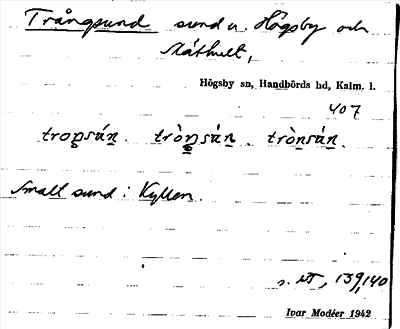 Trångsund sund u. Högsby och
Slåthult,
Högsby sn, Handbörds hd, Kalm. l.
407
troŋsán. tròŋsán. trònsán.
Smalt sund i Kyllen.
s. NT, 139,140
Ivar Modéer 1942